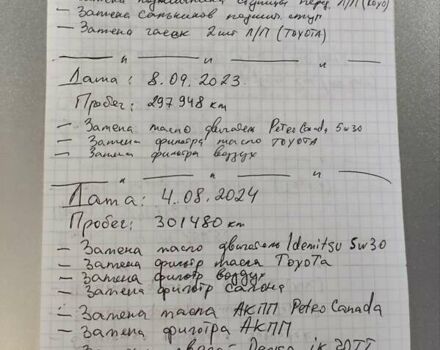 Л/П (KOYO)
— Замена Сальников подшип. ступ
— Замена гаек 2шт Л/П (TOYOTA)
Дата: 8.09.2023
Пробег: 297948 км
— Замена масло двигател Petro Canada 5w30
— Замена фильтра масло TOYOTA
— Замена фильтра воздух
Дата: 4.08.2024
Пробег: 301480 км
— Замена масло двигатель Idemitsu 5w30
— Замена фильтр масла Toyota
— Замена фильтр воздух
— Замена фильтр салона
— Замена масла АКПП Petro Canada
— Замена фильтра АКПП